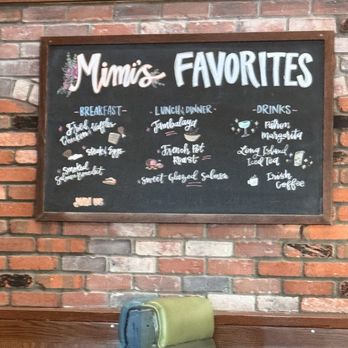 Mimi's FAVORITES
-BREAKFAST-
Fried
Chicken
Eggs
Smoked
Salmon Benedict
LUNCH & DINNER
Jambalaya
French Pot
Roast
Sweet Glazed Salmon
-DRINKS-
Patron
Margarita
Long Island
Iced Tea
Irish
Coffee